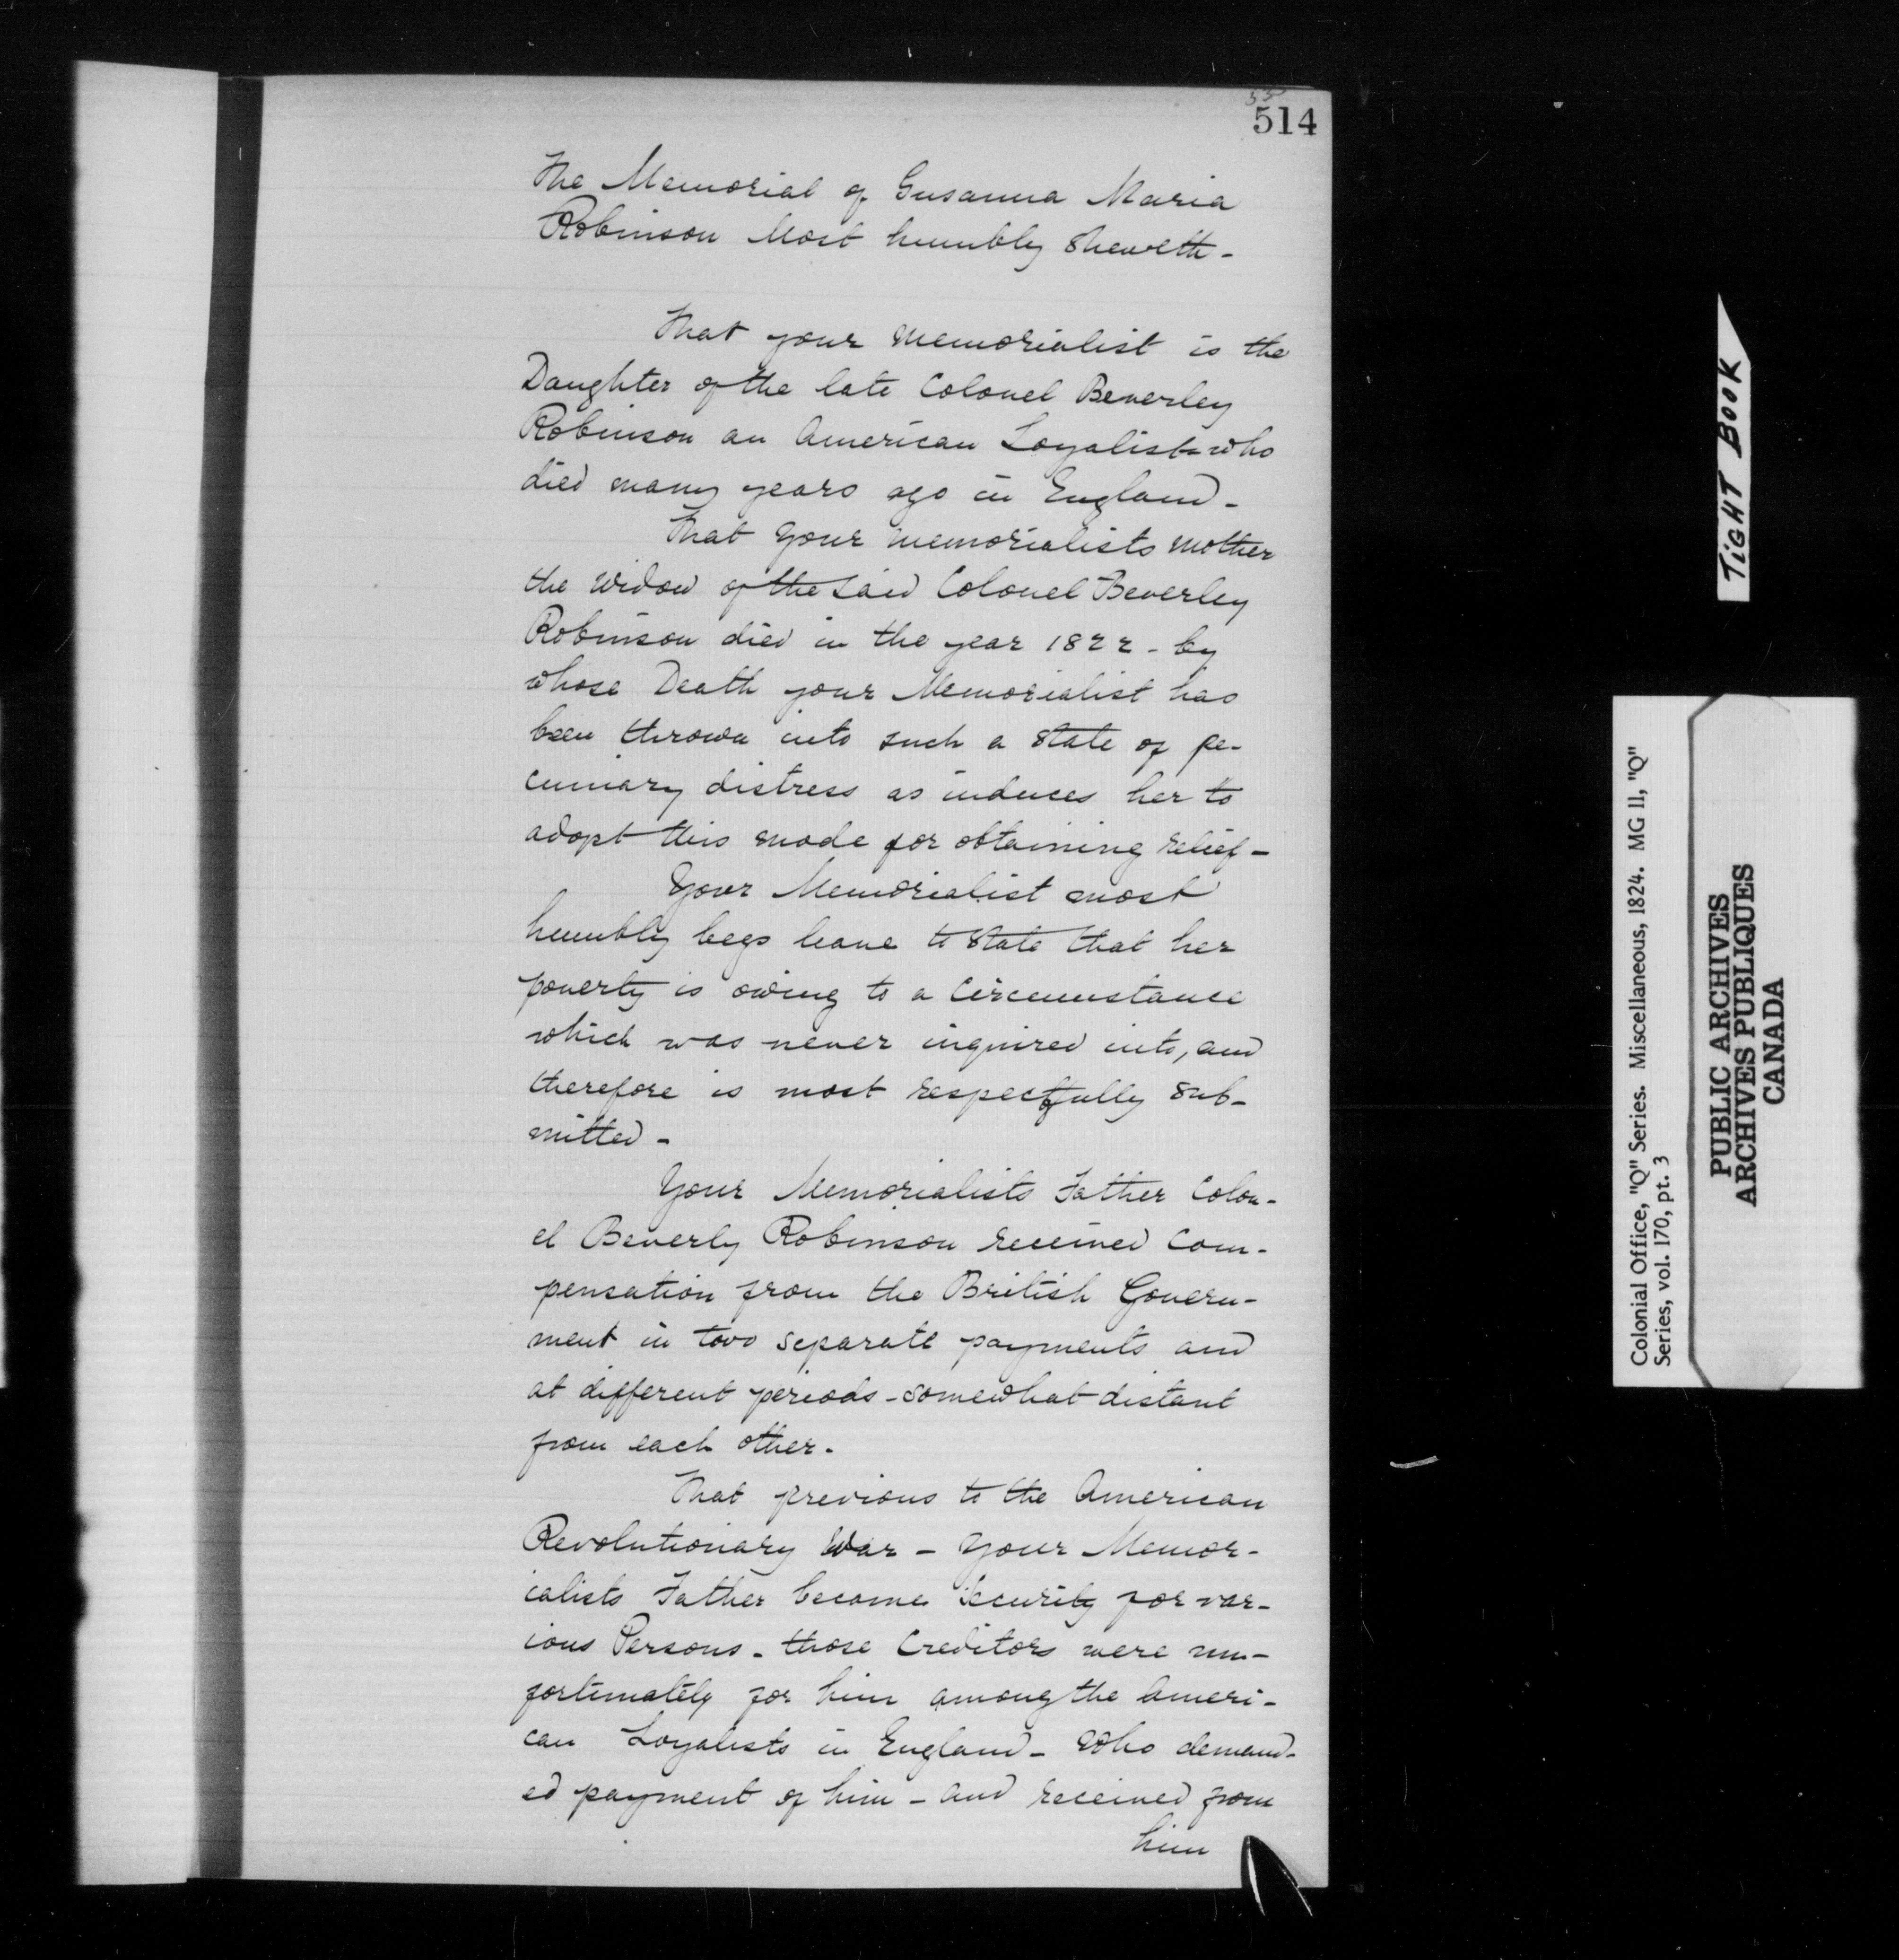 55
514
The Memorial of Susanna Maria
Robinson Most humbly Sheweth -
That your memorialist is the
Daughter of the late Colonel Beverley
Robinson an American Loyalist who
died many years ago in England -
That your memorialists mother
the Widow of the said Colonel Beverley
Robinson died in the year 1822 - by
whose Death your Memorialist has
been thrown into such a state of pe-
cuniary distress as induces her to
adopt this mode for obtaining relief -
Your Memorialist most
humbly begs leave to state that her
poverty is owing to a circumstance
which was never inquired into, and
therefore is most respectfully sub-
mitted -
Your Memorialists Father Colon-
el Beverly Robinson received com-
pensation from the British Govern-
ment in two separate payments and
at different periods - somewhat distant
from each other.
That previous to the American
Revolutionary War - your Memor-
ialists Father became Security for var-
ious Persons - those Creditors were un-
fortunately for him among the Ameri-
can Loyalists in England - who demand-
ed payment of him - and received from
him
TIGHT BOOK
Colonial Office, "Q" Series. Miscellaneous, 1824. MG 11, "Q"
Series, vol. 170, pt. 3
PUBLIC ARCHIVES
ARCHIVES PUBLIQUES
CANADA